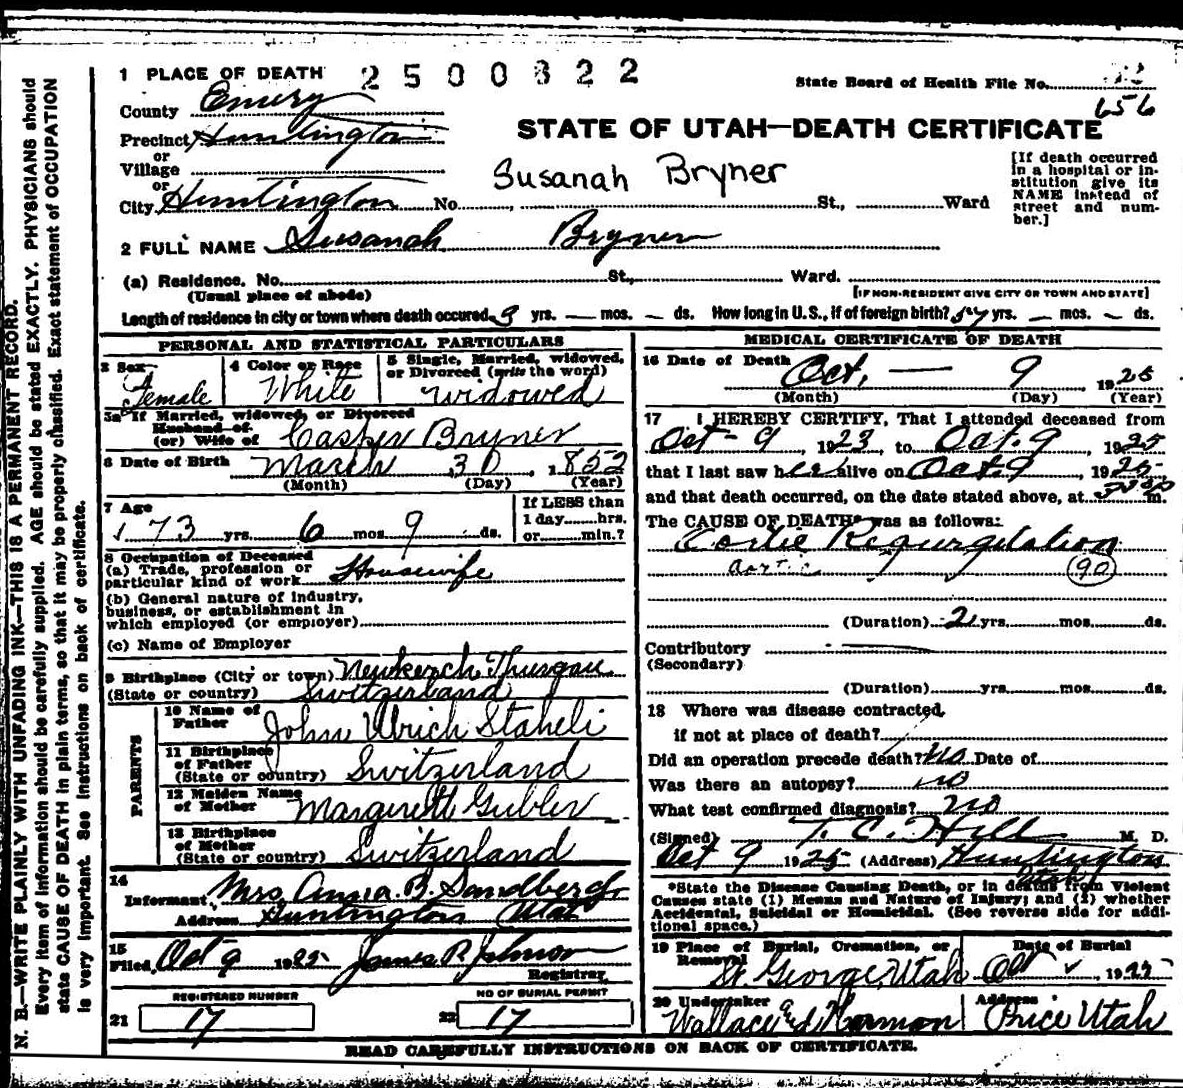 1 PLACE OF DEATH 2500322
State Board of Health File No.
656
County Emery
Precinct Huntington
or
Village
or
City Huntington No. , St., Ward
STATE OF UTAH—DEATH CERTIFICATE
Susanah Bryner
[If death occurred in a hospital or in-
stitution give its
NAME instead of
street and num-
ber.]
2 FULL NAME Susanah Bryner
(a) Residence. No. St., Ward.
(Usual place of abode) [IF NON-RESIDENT GIVE CITY OR TOWN AND STATE]
Length of residence in city or town where death occured 3 yrs. — mos. — ds. How long in U.S., if of foreign birth? 54 yrs. — mos. — ds.
PERSONAL AND STATISTICAL PARTICULARS
3 Sex Female
4 Color or Race White
5 Single, Married, widowed, or Divorced (write the word) widowed
5a If Married, widowed, or Divorced
Husband of
(or) Wife of Casper Bryner
6 Date of Birth March 30, 1852
(Month) (Day) (Year)
7 Age 73 yrs. 6 mos 9 ds.
If LESS than
1 day hrs.
or min.?
8 Occupation of Deceased
(a) Trade, profession or
particular kind of work Housewife
(b) General nature of industry,
business, or establishment in
which employed (or employer)
(c) Name of Employer
9 Birthplace (City or town) Neukerch Thurgau
(State or country) Switzerland
PARENTS
10 Name of
Father John Ulrich Staheli
11 Birthplace
of Father
(State or country) Switzerland
12 Maiden Name
of Mother Margarett Gubler
13 Birthplace
of Mother
(State or country) Switzerland
14
Informant Mrs. Anna B. Sandberg
Address Huntington Utah
15
Filed Oct 9 1925 James P. Johnson
Registrar
REGISTERED NUMBER
21 17
NO OF BURIAL PERMIT
22 17
MEDICAL CERTIFICATE OF DEATH
16 Date of Death Oct, — 9 1925
(Month) (Day) (Year)
17 I HEREBY CERTIFY, That I attended deceased from
Oct - 9, 1923, to Oct. 9, 1925
that I last saw her alive on Oct. 9, 1925
and that death occurred, on the date stated above, at m.
The CAUSE OF DEATH* was as follows:
Aortic Regurgitation
aortic 90
(Duration) 2 yrs. mos. ds.
Contributory
(Secondary)
(Duration) yrs. mos. ds.
18 Where was disease contracted,
if not at place of death?
Did an operation precede death? No Date of
Was there an autopsy? no
What test confirmed diagnosis? no
(Signed) T. C. Hill M. D.
Oct 9 1925 (Address) Huntington
Utah
*State the Disease Causing Death, or in deaths from Violent
Causes state (1) Means and Nature of Injury; and (2) whether
Accidental, Suicidal or Homicidal. (See reverse side for addi-
tional space.)
19 Place of Burial, Cremation, or
Removal St. George, Utah
Date of Burial
Oct 1925
20 Undertaker
Wallace and Harmon
Address
Price Utah
READ CAREFULLY INSTRUCTIONS ON BACK OF CERTIFICATE.
N. B.—WRITE PLAINLY WITH UNFADING INK—THIS IS A PERMANENT RECORD.
Every item of information should be carefully supplied. AGE should be stated EXACTLY. PHYSICIANS should
state CAUSE OF DEATH in plain terms, so that it may be properly classified. Exact statement of OCCUPATION
is very important. See instructions on back of certificate.